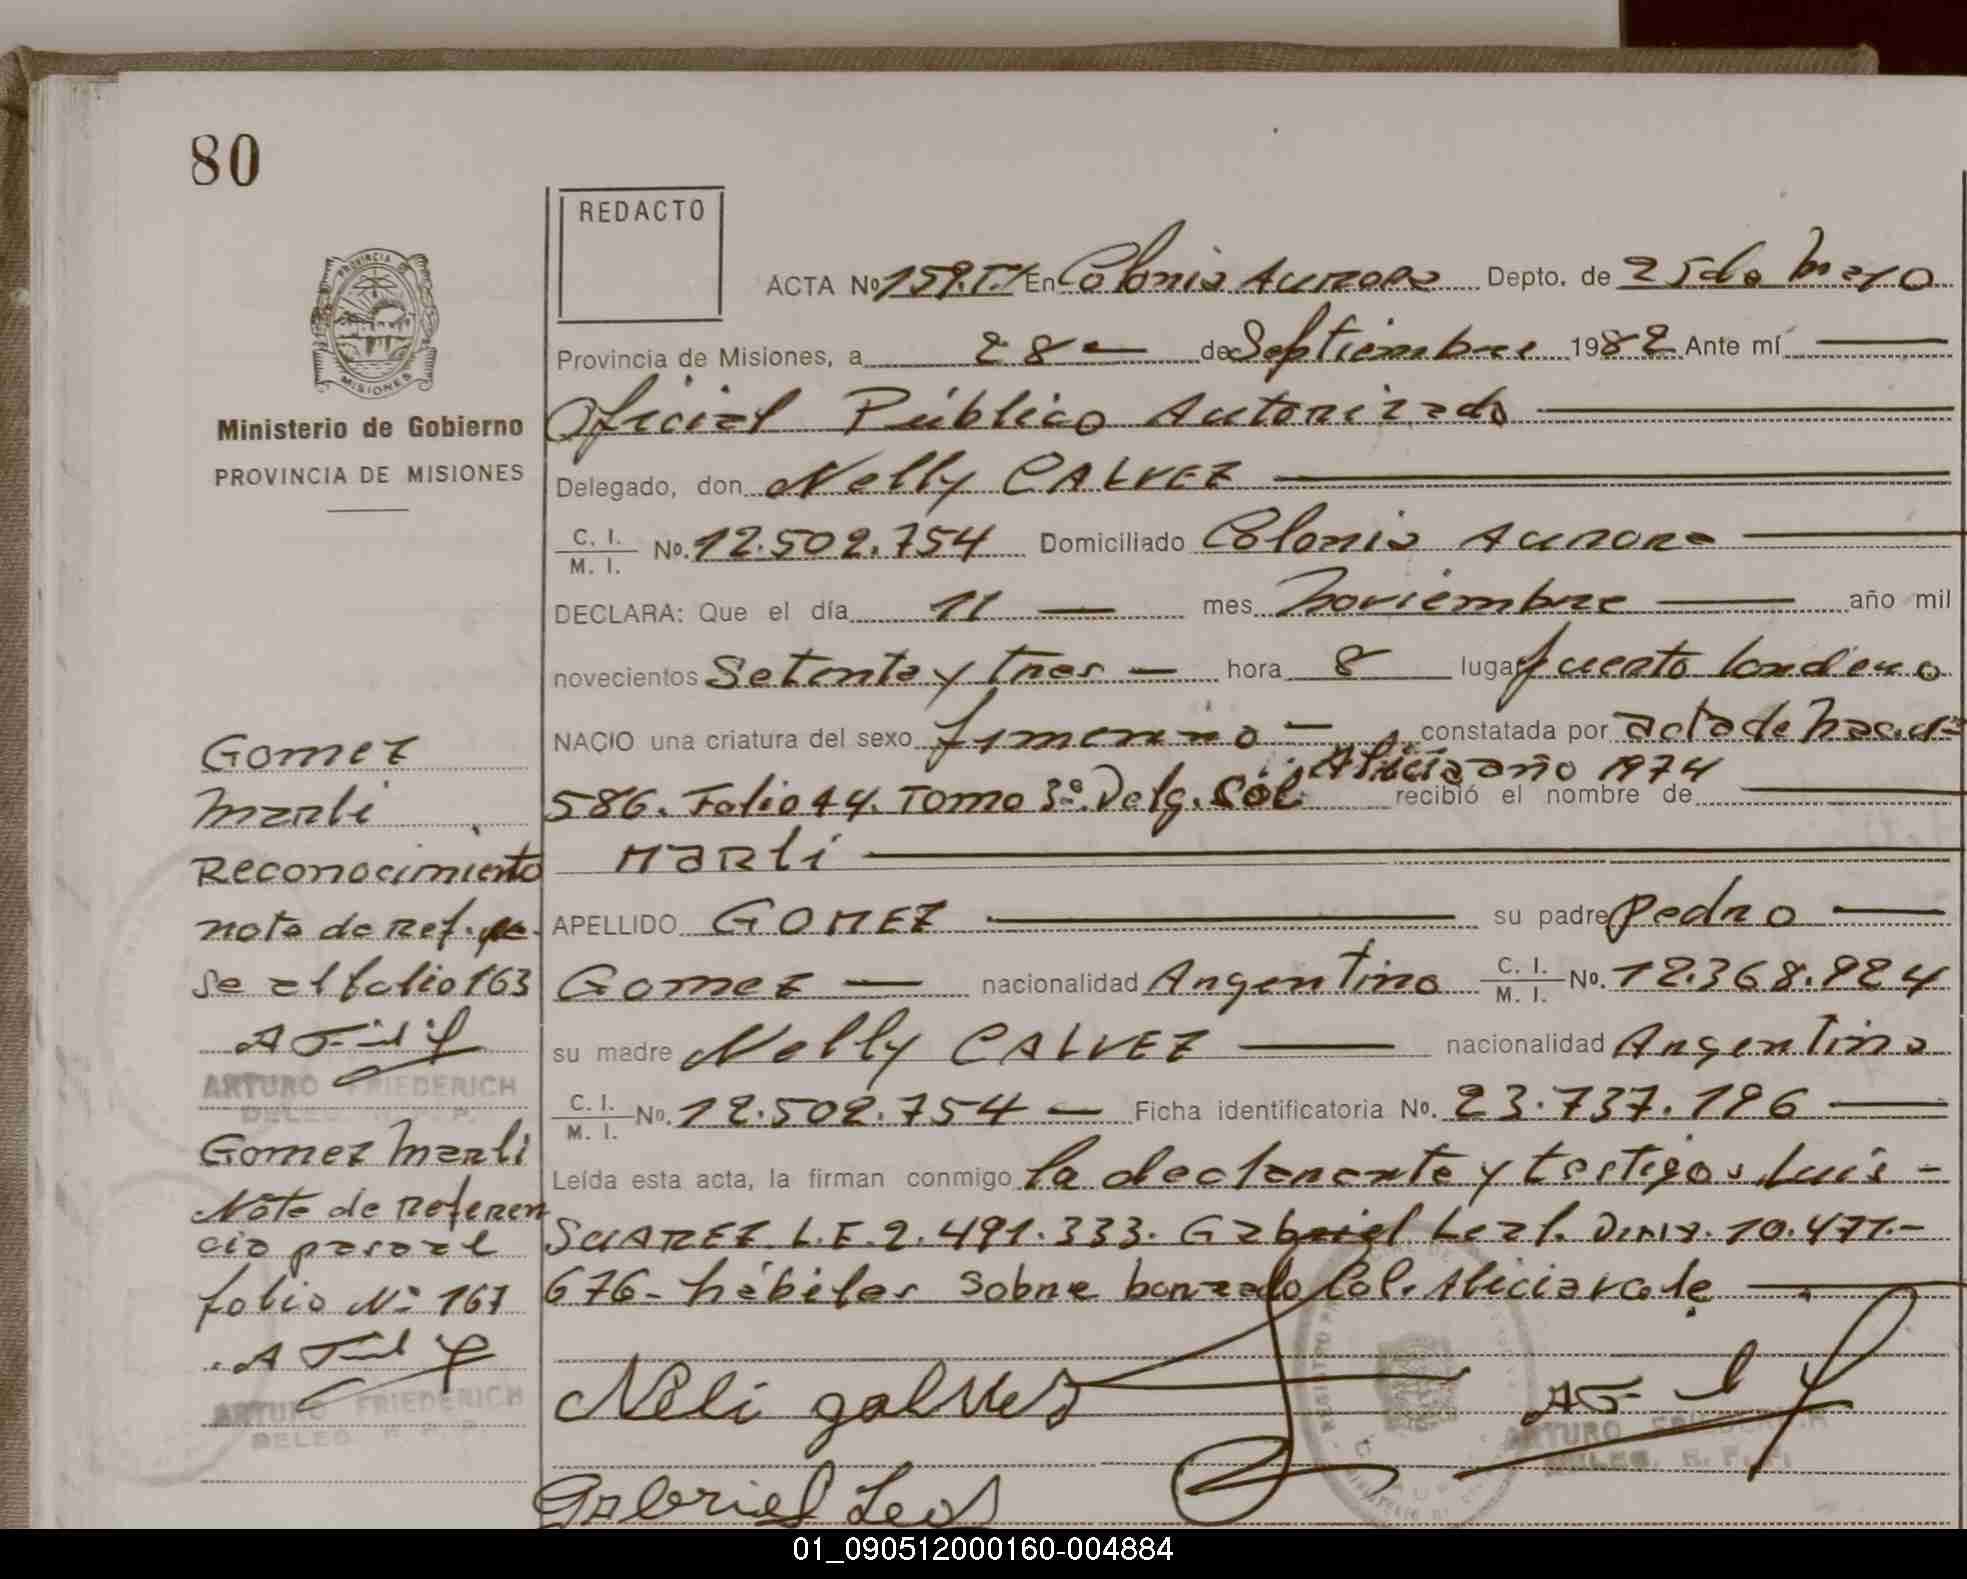 80
REDACTO
PROVINCIA DE
MISIONES
Ministerio de Gobierno
PROVINCIA DE MISIONES
ACTA Nº 159.T.I En Colonia Aurora Depto. de 25 de Mayo
Provincia de Misiones, a 28 de Septiembre 1982 Ante mí
Oficial Público Autorizado
Delegado, don Nelly CALVEZ
C. I. / M. I. Nº. 12.502.754 Domiciliado Colonia Aurora
DECLARA: Que el día 11 mes Noviembre año mil
novecientos Setenta y tres hora 8 lugar puerto londero
NACIO una criatura del sexo femenino constatada por acta de Nac.
586. Folio 44. Tomo 3º. Delg. Col. Alicia año 1974 recibió el nombre de
MARLI
APELLIDO GOMEZ su padre Pedro
Gomez nacionalidad Argentino C. I. / M. I. Nº. 12.368.924
su madre Nelly CALVEZ nacionalidad Argentina
C. I. / M. I. Nº. 12.502.754 Ficha identificatoria Nº. 23.737.196
Leída esta acta, la firman conmigo la declarante y testigos Luis
SUAREZ L.E. 2.491.333. Gabriel Leal. 10.471.-
676- hábiles Sobre borrado Col. Alicia vale
Neli galvez
Gabriel Leal
ARTURO
Gomez
Marli
Reconocimiento
nota de Ref. pa-
se al folio 163
ARTURO FRIEDERICH
DELEG. R. P. P.
Gomez Marli
Nota de Referen
cia pasa al
folio Nº 167
ARTURO FRIEDERICH
DELEG. R. P. P.
01_090512000160-004884